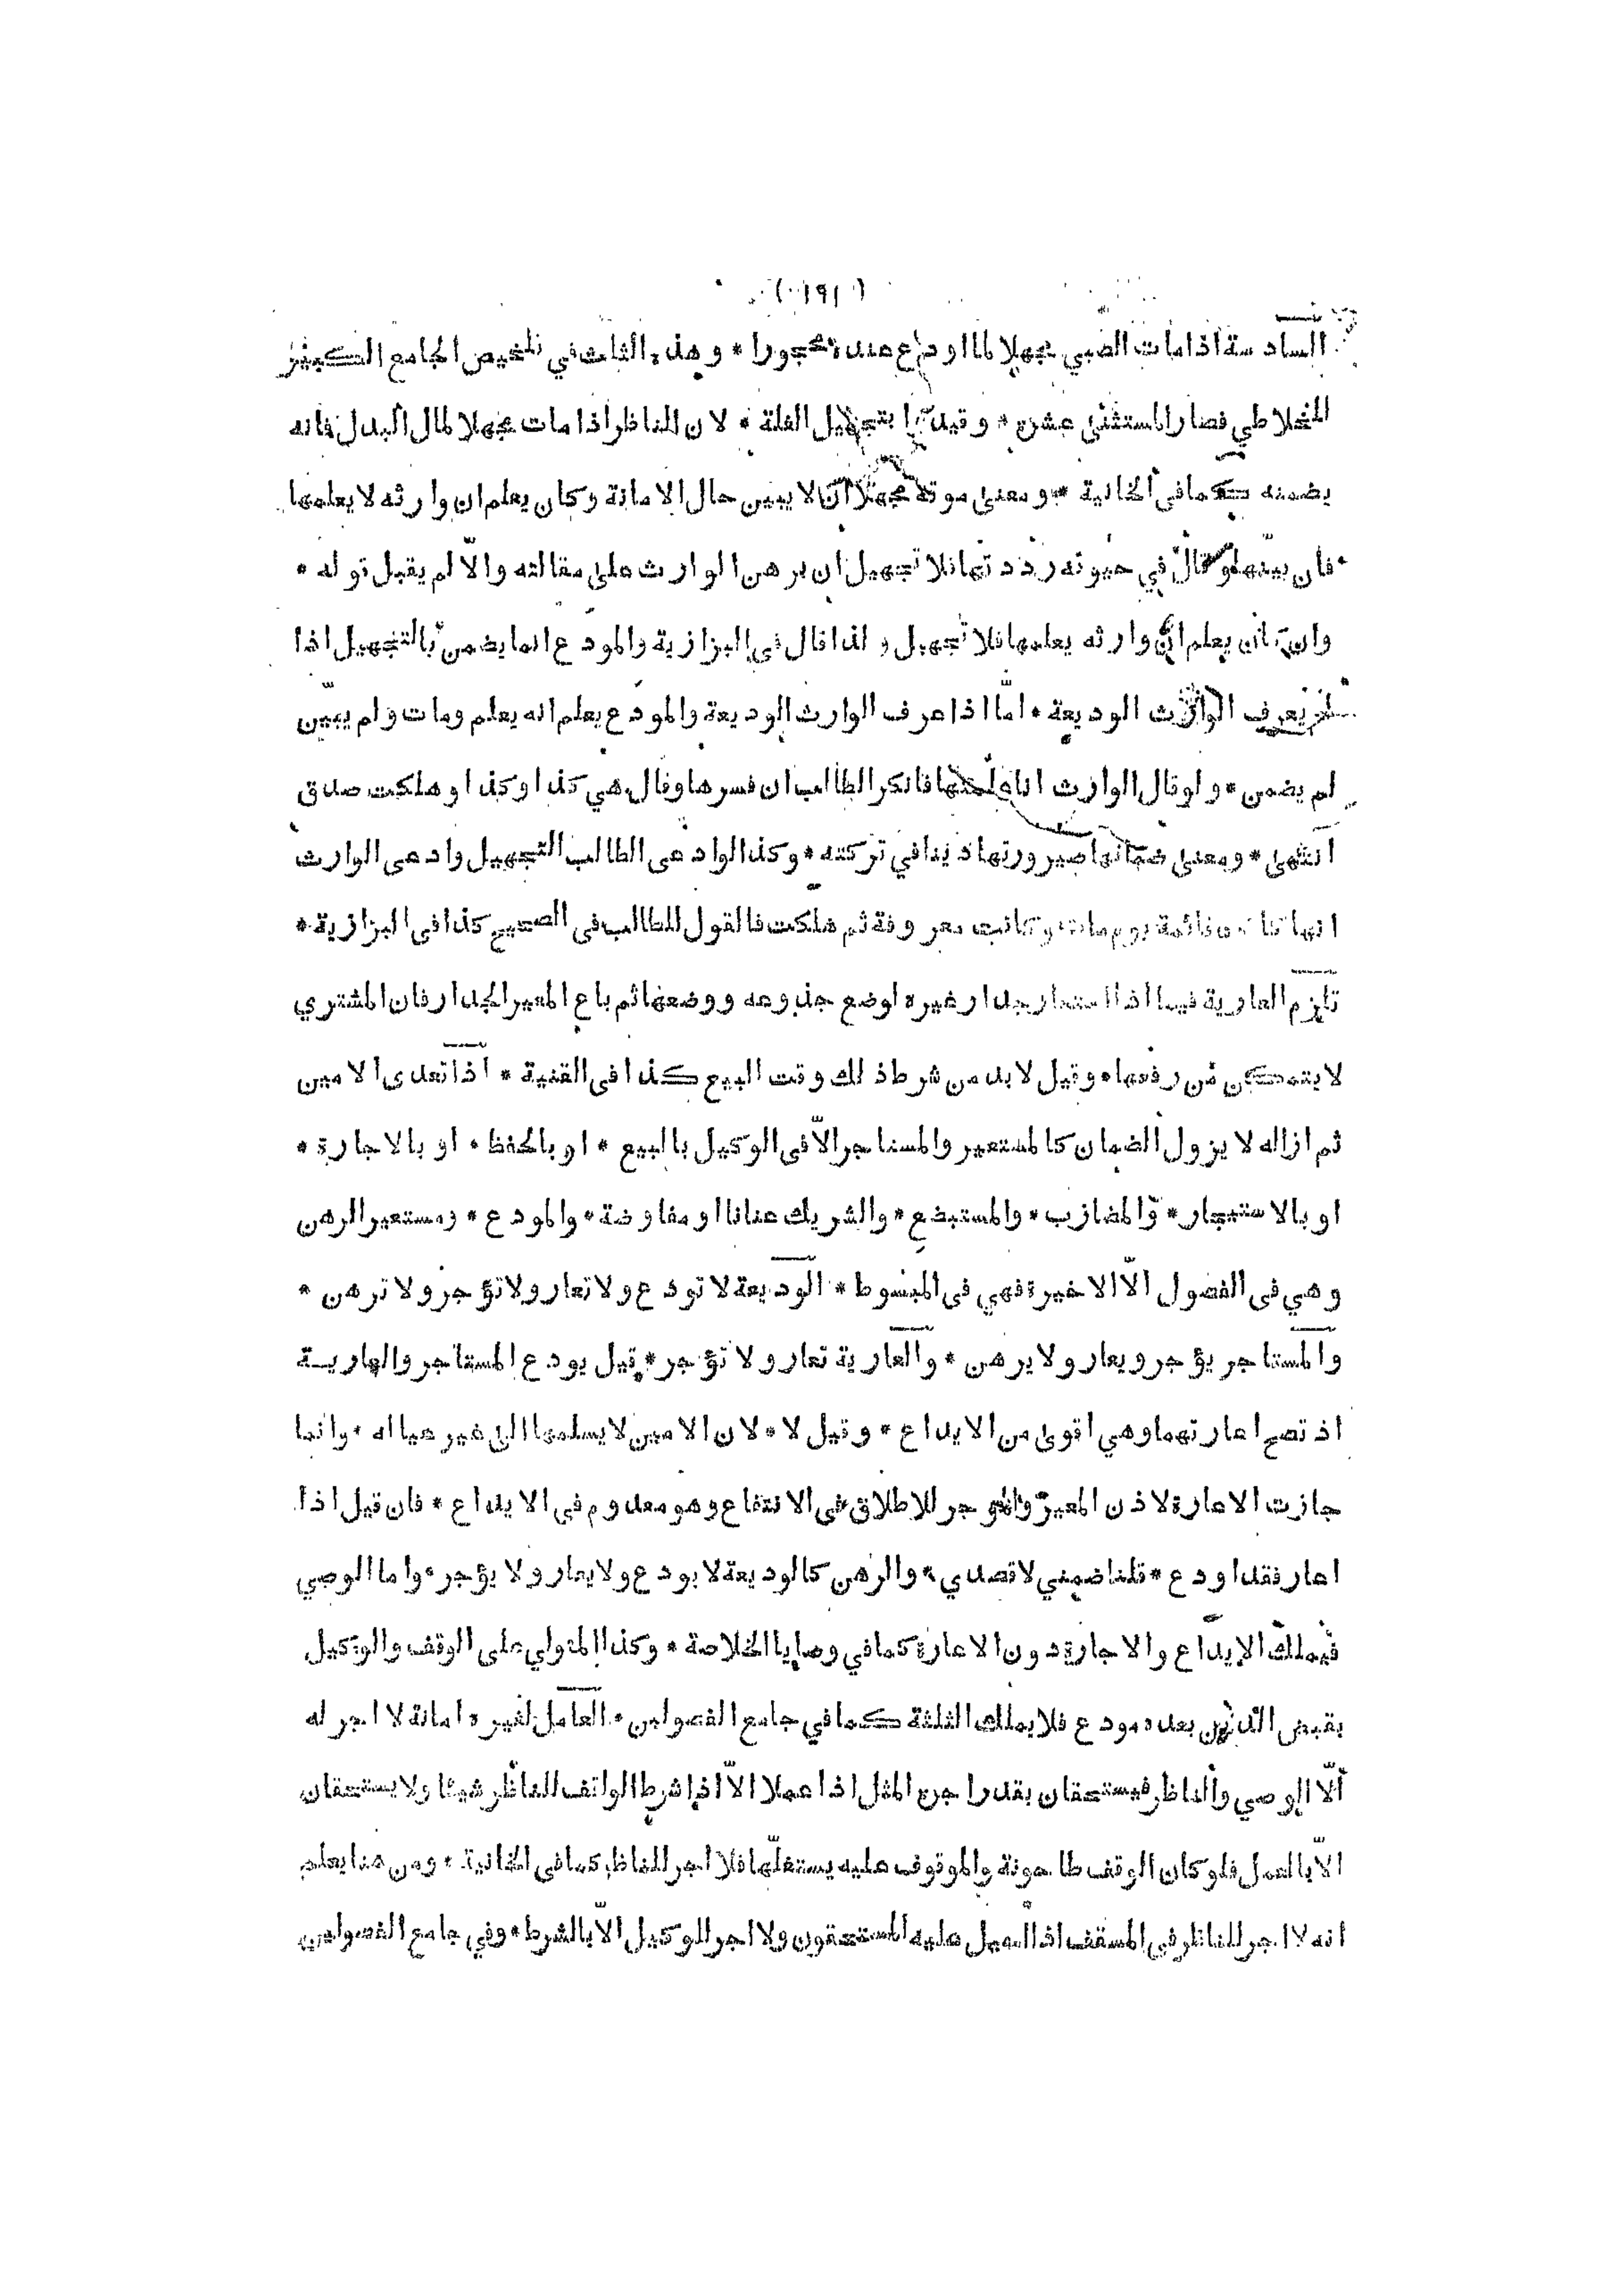 (١٩١)
السادسة اذا مات الصبي مجهلا لما اودع عنده محجورا * وهذه الثلث في تلخيص الجامع الكبير
للخلاطي فصار المستثنى عشرة * وقيدنا بتجهيل الغلة * لان الناظر اذا مات مجهلا لمال البدل فانه
يضمنه كما فى الخانية * ومعنى موته مجهلا ان لا يبين حال الامانة وكان يعلم ان وارثه لا يعلمها
فان بينها وقال في حيوته رددتها فلا تجهيل ان برهن الوارث على مقالته والّا لم يقبل قوله *
وان كان يعلم ان وارثه يعلمها فلا تجهيل ولذا قال فى البزازية والمودع انما يضمن بالتجهيل اذا
لم يعرف الوارث الوديعة * امّا اذا عرف الوارث الوديعة والمودع يعلم انه يعلم ومات ولم يبيّن
لم يضمن * ولو قال الوارث انا علمتها فانكر الطالب ان فسرها وقال هي كذا وكذا وهلكت صدق
انتهى * ومعنى ضمانها صيرورتها دينا في تركته * وكذا لو ادعى الطالب التجهيل وادعى الوارث
انها كانت قائمة يوم مات وكانت معروفة ثم هلكت فالقول للطالب فى الصحيح كذا فى البزازية *
تلزم العارية فيما اذا استعار جدار غيره لوضع جذوعه ووضعها ثم باع المعير الجدار فان المشتري
لا يتمكن من رفعها * وقيل لا بد من شرط ذلك وقت البيع كذا فى القنية * اذا تعدى الامين
ثم ازاله لا يزول الضمان كالمستعير والمستاجر الّا فى الوكيل بالبيع * او بالحفظ * او بالاجارة *
او بالاستيجار * والمضارب * والمستبضع * والشريك عنانا او مفاوضة * والمودع * ومستعير الرهن
وهي فى الفصول الّا الاخيرة فهي فى المبسوط * الوديعة لا تودع ولا تعار ولا تؤجر ولا ترهن *
والمستاجر يؤجر ويعار ولا يرهن * والعارية تعار ولا تؤجر * قيل يودع المستاجر والعارية
اذ تصح اعارتهما وهي اقوى من الايداع * وقيل لا * لان الامين لا يسلمها الى غير عياله * وانما
جازت الاعارة لاذن المعير والموجر للاطلاق فى الانتفاع وهو معدوم فى الايداع * فان قيل اذا
اعار فقد اودع * قلنا ضمني لا قصدي * والرهن كالوديعة لا يودع ولا يعار ولا يؤجر * واما الوصي
فيملك الايداع والاجارة دون الاعارة كما في وصايا الخلاصة * وكذا المتولي على الوقف والوكيل
بقبض الدين بعده مودع فلا يملك الثلثة كما في جامع الفصولين * العامل لغيره امانة لا اجر له
الّا الوصي والناظر فيستحقان بقدر اجرة المثل اذا عملا الّا اذا شرط الواقف للناظر شيئا ولا يستحقان
الّا بالعمل فلو كان الوقف طاحونة والموقوف عليه يستغلّها فلا اجر للناظر كما فى الخانية * ومن هنا يعلم
انه لا اجر للناظر فى المسقف اذا احيل عليه المستحقون ولا اجر للوكيل الّا بالشرط * وفي جامع الفصولين